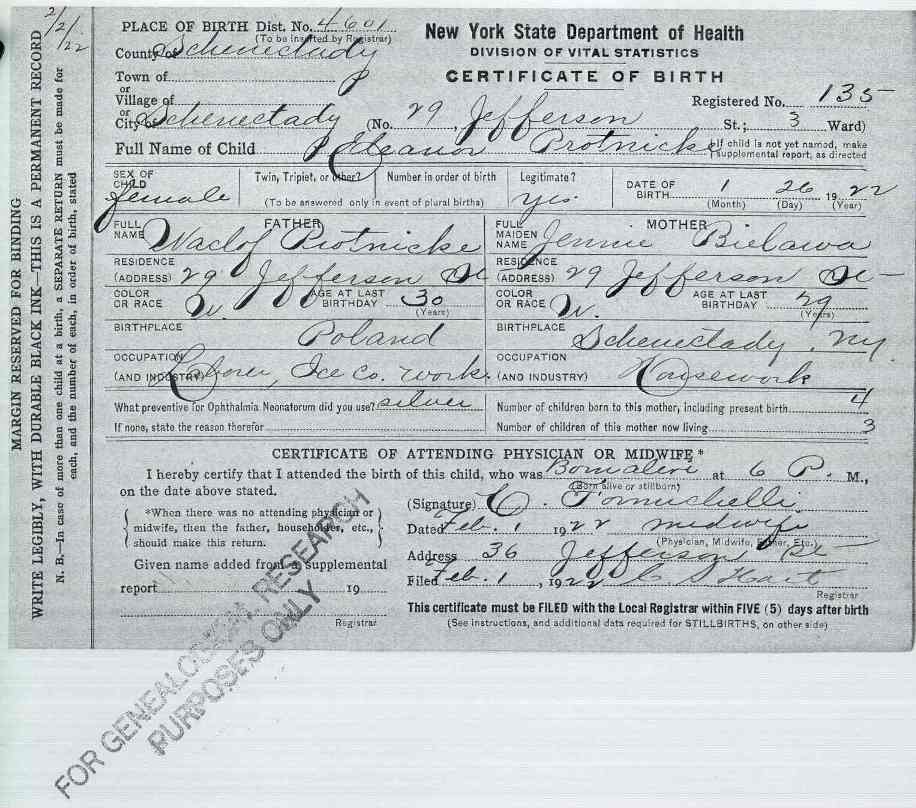 2/2/22
MARGIN RESERVED FOR BINDING
WRITE LEGIBLY, WITH DURABLE BLACK INK—THIS IS A PERMANENT RECORD
N. B.—In case of more than one child at a birth, a SEPARATE RETURN must be made for
each, and the number of each, in order of birth, stated
PLACE OF BIRTH Dist. No. 4601
(To be inserted by Registrar)
New York State Department of Health
DIVISION OF VITAL STATISTICS
CERTIFICATE OF BIRTH
County of Schenectady
Town of
or
Village of
or
Registered No. 135
City of Schenectady (No. 29, Jefferson St.; 3 Ward)
Full Name of Child Eleanor Protnicke
If child is not yet named, make
supplemental report, as directed
SEX OF CHILD female
Twin, Triplet, or other? Number in order of birth
(To be answered only in event of plural births)
Legitimate? yes.
DATE OF BIRTH 1 26 1922
(Month) (Day) (Year)
FATHER
FULL NAME Waclof Protnicke
RESIDENCE (ADDRESS) 29 Jefferson St
COLOR OR RACE W. AGE AT LAST BIRTHDAY 30
(Years)
BIRTHPLACE Poland
OCCUPATION (AND INDUSTRY) Laborer, Ice Co. work.
MOTHER
FULL MAIDEN NAME Jennie Bielawa
RESIDENCE (ADDRESS) 29 Jefferson St
COLOR OR RACE W. AGE AT LAST BIRTHDAY 29
(Years)
BIRTHPLACE Schenectady, N.Y.
OCCUPATION (AND INDUSTRY) Housework
What preventive for Ophthalmia Neonatorum did you use? silver
If none, state the reason therefor
Number of children born to this mother, including present birth 4
Number of children of this mother now living 3
CERTIFICATE OF ATTENDING PHYSICIAN OR MIDWIFE*
I hereby certify that I attended the birth of this child, who was Born alive at 6 P. M.,
(Born alive or stillborn)
on the date above stated.
*When there was no attending physician or
midwife, then the father, householder, etc.,
should make this return.
Given name added from a supplemental
report 19
Registrar
(Signature) C. Tomuchelli
Dated Feb. 1 1922 midwife
(Physician, Midwife, Father, Etc.)
Address 36 Jefferson St
Filed Feb. 1, 1922 Hart
Registrar
This certificate must be FILED with the Local Registrar within FIVE (5) days after birth
(See instructions, and additional data required for STILLBIRTHS, on other side)
FOR GENEALOGICAL RESEARCH
PURPOSES ONLY